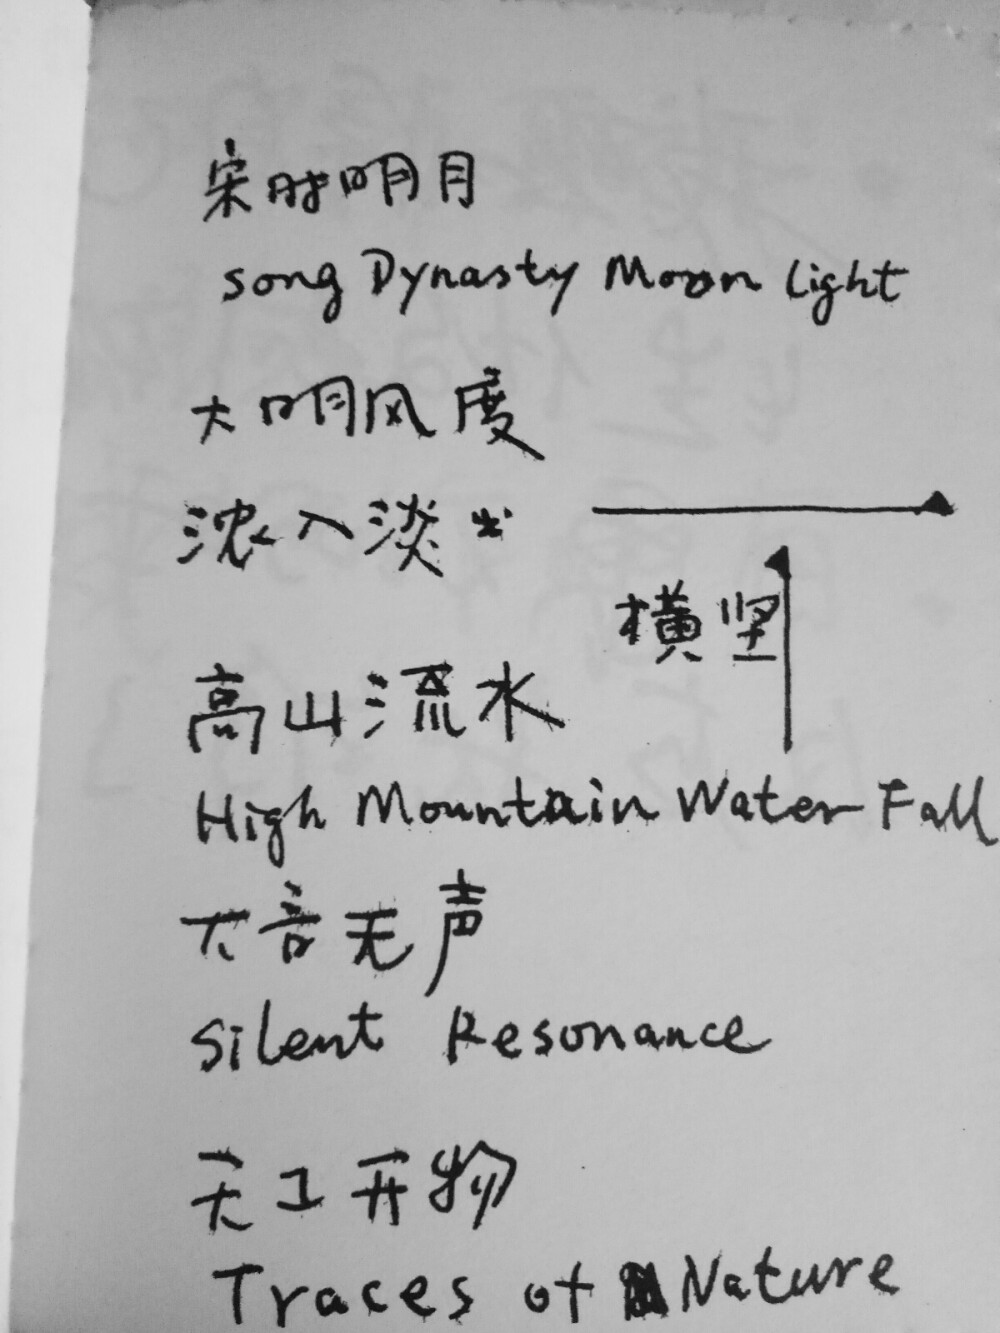 宋时明月
Song Dynasty Moon Light
大明风度
浓入淡出
横竖
高山流水
High Mountain Water Fall
大音无声
Silent Resonance
天工开物
Traces of Nature